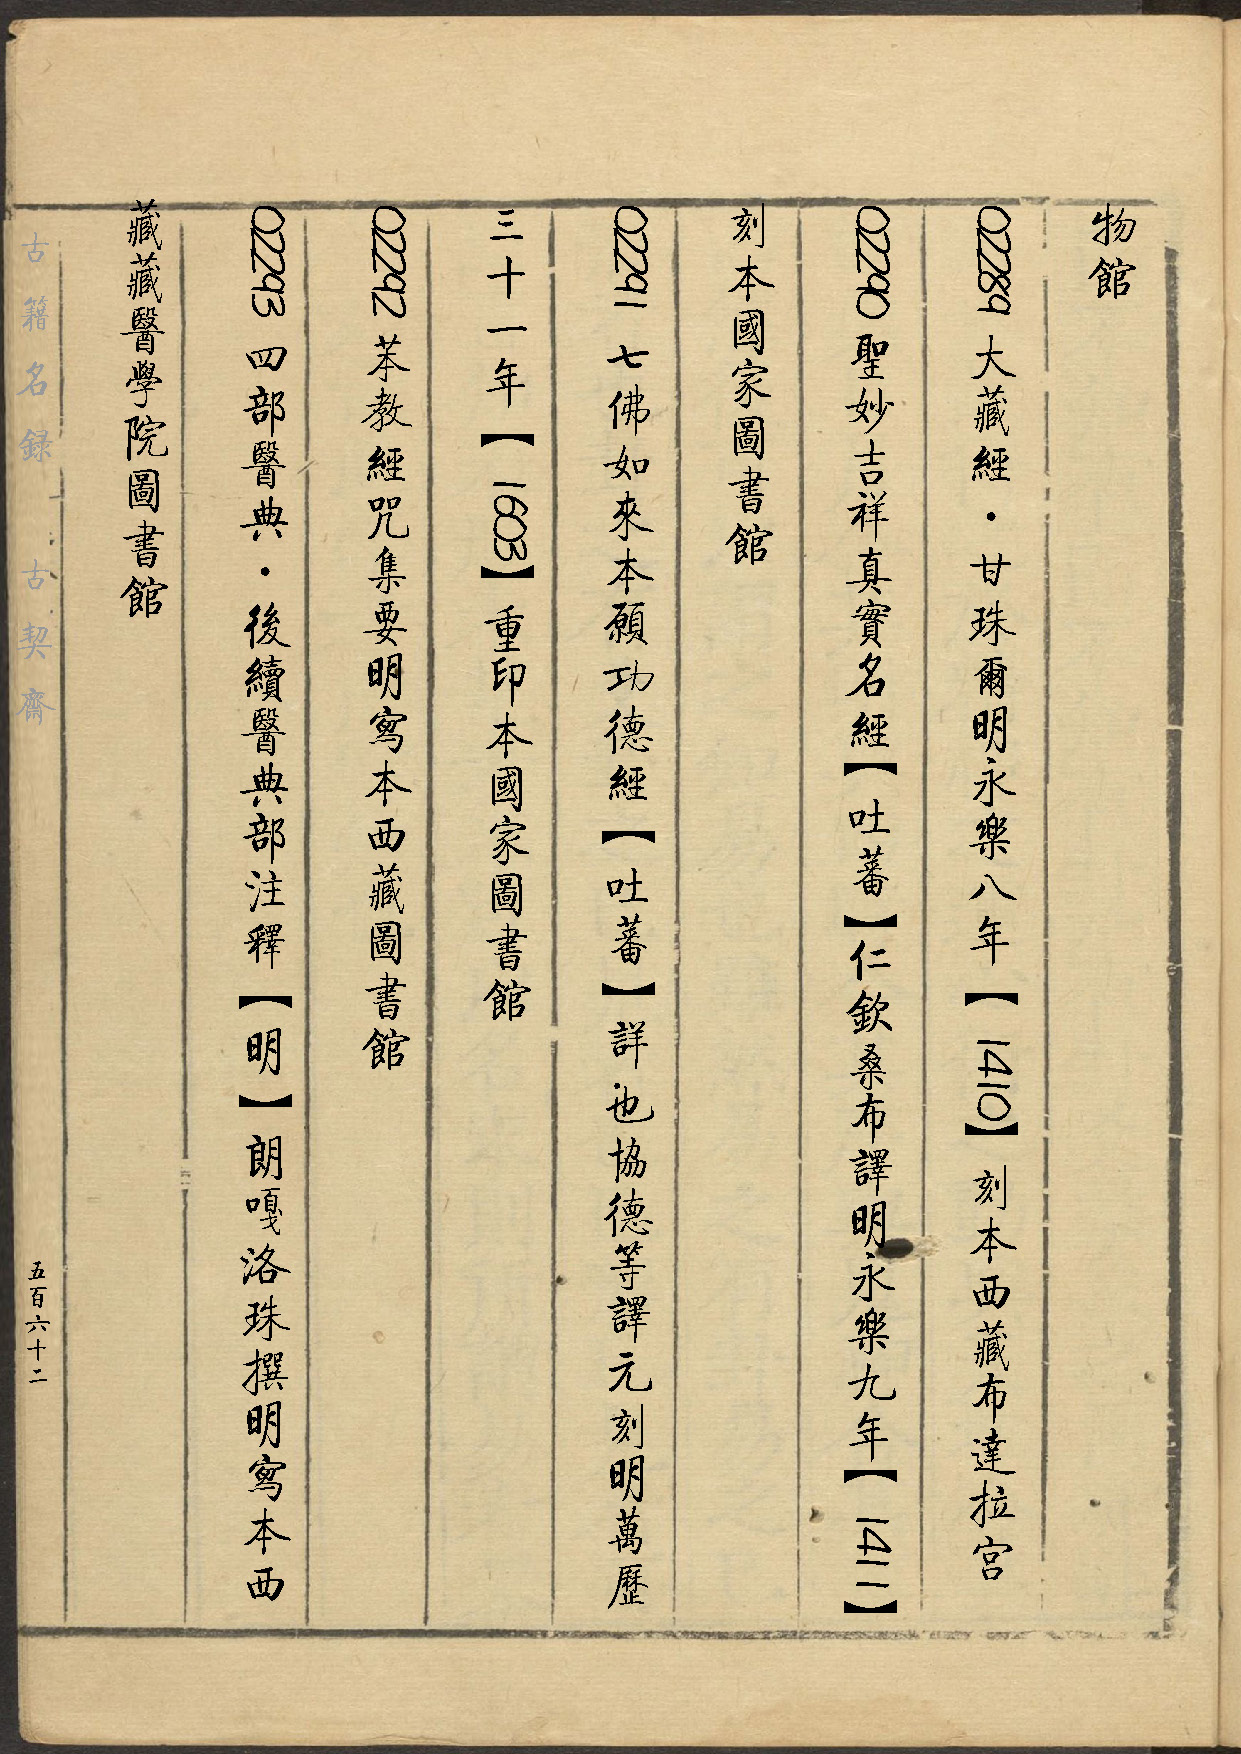 物館
02289 大藏經·甘珠爾明永樂八年【1410】刻本西藏布達拉宮
02290 聖妙吉祥真實名經【吐蕃】仁欽桑布譯明永樂九年【1411】
刻本國家圖書館
02291 七佛如來本願功德經【吐蕃】詳也協德等譯元刻明萬歷
三十一年【1603】重印本國家圖書館
02292 苯教經咒集要明寫本西藏圖書館
02293 四部醫典·後續醫典部注釋【明】朗嘎洛珠撰明寫本西
藏藏醫學院圖書館
古籍名録 古契齋
五百六十二